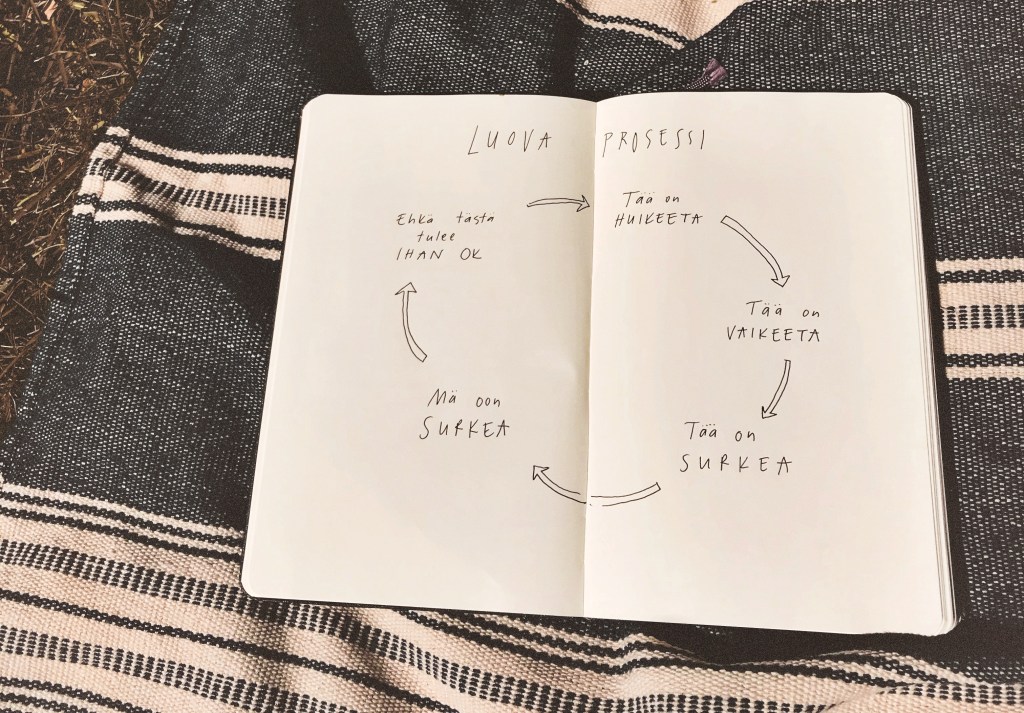 LUOVA PROSESSI
Tää on
HUIKEETA
Tää on
VAIKEETA
Tää on
SURKEA
Mä oon
SURKEA
Ehkä tästä
tulee
IHAN OK